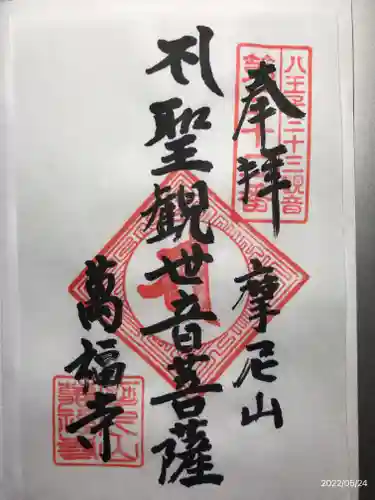 八王子三十三観音
奉拝
摩尼山
札聖観世音菩薩
萬福寺
2022/06/24